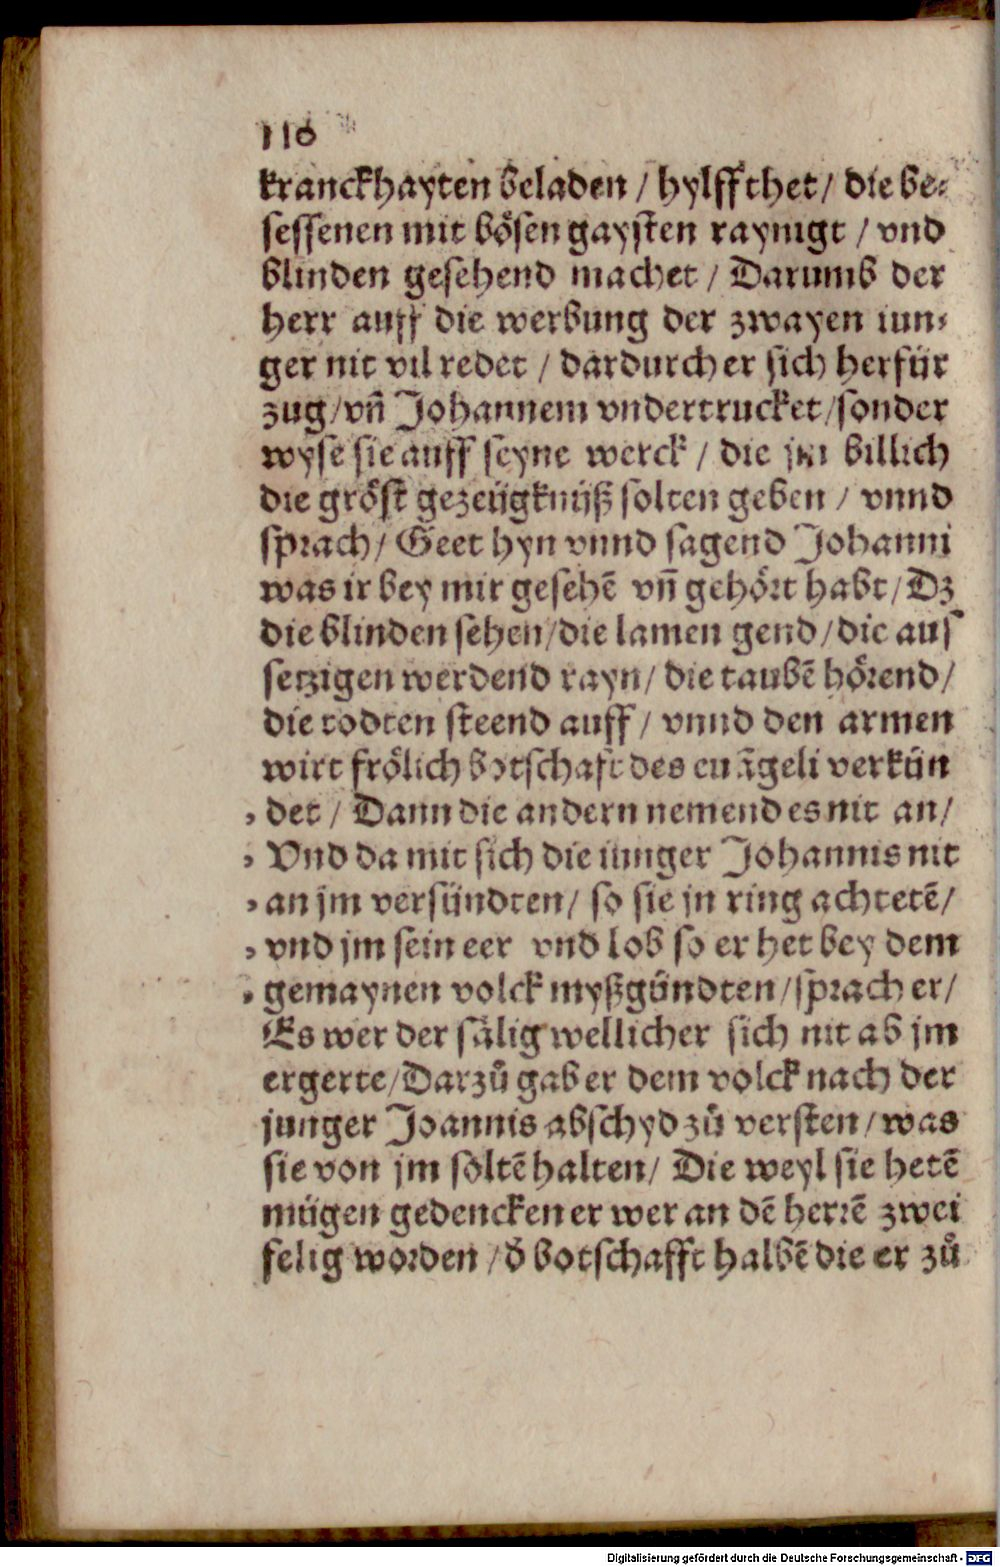 116
kranckhayten beladen / hylff thet / die be⸗
sessenen mit bösen gaysten raynigt / vnd
blinden gesehend machet / Darumb der
herr auff die werbung der zwayen iun⸗
ger nit vil redet / dardurch er sich herfür
zug / vñ Johannem vndertrucket / sonder
wyse sie auff seyne werck / die jm billich
die gröst gezeügknüß solten geben / vnnd
sprach / Geet hyn vnnd sagend Johanni
was ir bey mir gesehē vñ gehört habt / Dz
die blinden sehen / die lamen gend / die aus
setzigen werdend rayn / die taubē hörend /
die todten steend auff / vnnd den armen
wirt frölich botschafft des euāgeli verkün
det / Dann die andern nemend es nit an /
Vnd da mit sich die iunger Johannis nit
an jm versündten / so sie jn ring achtetē /
vnd jm sein eer vnd lob so er het bey dem
gemaynen volck myßgündten / sprach er /
Es wer der sälig wellicher sich nit ab jm
ergerte / Darzů gab er dem volck nach der
junger Joannis abschyd zů versten / was
sie von jm soltē halten / Die weyl sie hetē
mügen gedencken er wer an dē herrē zwei
felig worden / d̕ botschafft halbē die er zů
Digitalisierung gefördert durch die Deutsche Forschungsgemeinschaft - DFG